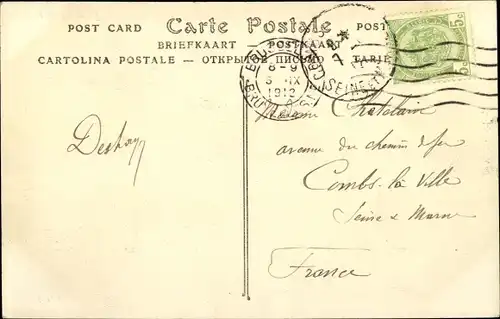 POST CARD Carte Postale POS
BRIEFKAART — POSTKAART
CARTOLINA POSTALE — ОТКРЫТОЕ ПИСЬМО TARJE
8-9
IX
1912
5c
Madame Chatelain
avenue du chemin de fer
Combs-la Ville
Seine & Marne
France